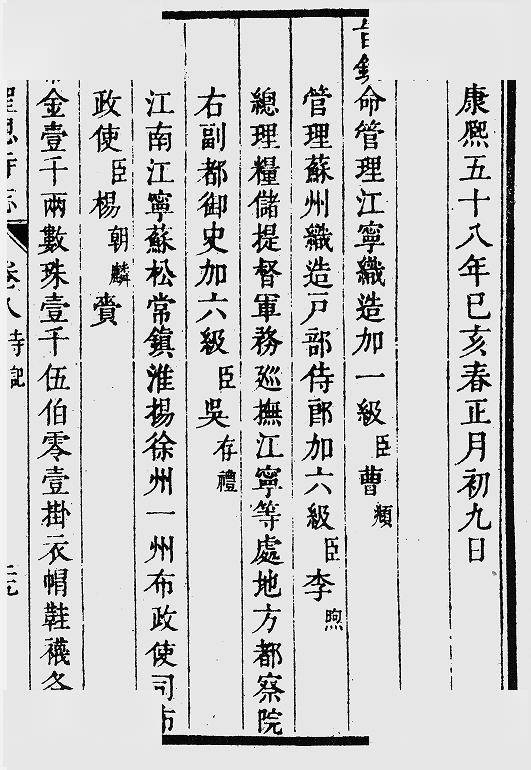 康熙五十八年巳亥春正月初九日
命管理江寧織造加一級臣曹頫
管理蘇州織造戶部侍郎加六級臣李煦
總理糧儲提督軍務巡撫江寧等處地方都察院
右副都御史加六級臣吳存禮
江南江寧蘇松常鎮淮揚徐州一州布政使司布
政使臣楊朝麟賫
金壹千兩數珠壹千伍伯零壹掛衣帽鞋襪各
卷八